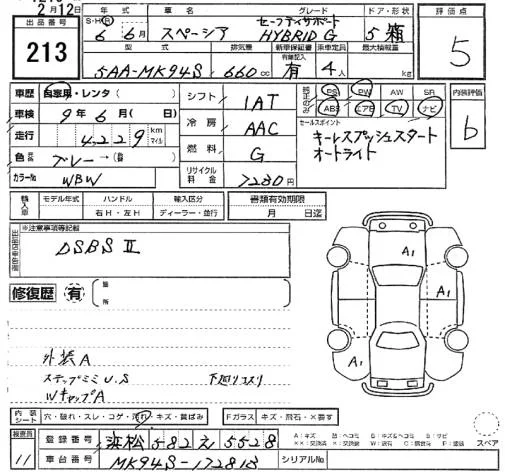 2月12日
出品番号
213
年式 車名 グレード ドア・形状
S・H・R 6年 6月 スペーシア セーフティサポート HYBRID G 5 箱
型式 排気量 新車保証書 乗車定員 最大積載量
有無記入
5AA-MK94S 660cc 有 4人 kg
評価点
5
車歴 自家用・レンタ( )
車検 9年 6月( 日)
走行 4229 km マイル
色 グレー→(替)
カラーNo WBW
シフト 1AT
冷房 AAC
燃料 G
リサイクル料金 7280円
PS PW AW SR
ABS エアB TV ナビ
セールスポイント
キーレスプッシュスタート
オートライト
内装評価
b
輸入車 モデル年式 ハンドル 輸入区分 書類有効期限
右H・左H ディーラー・並行 月 日迄
※注意事項等記載
DSBS II
修復歴 有
箇所
A1
A1
A1
外装A
ステップミミU.S 下廻リコスリ
WキャップA
内装シート 穴・破れ・スレ・コゲ・汚れ・キズ・黄ばみ
Fガラス キズ・飛石・×要す
検査員
11
登録番号 浜松 582 え 5528
車台番号 MK94S-172818 シリアルNo
スペア